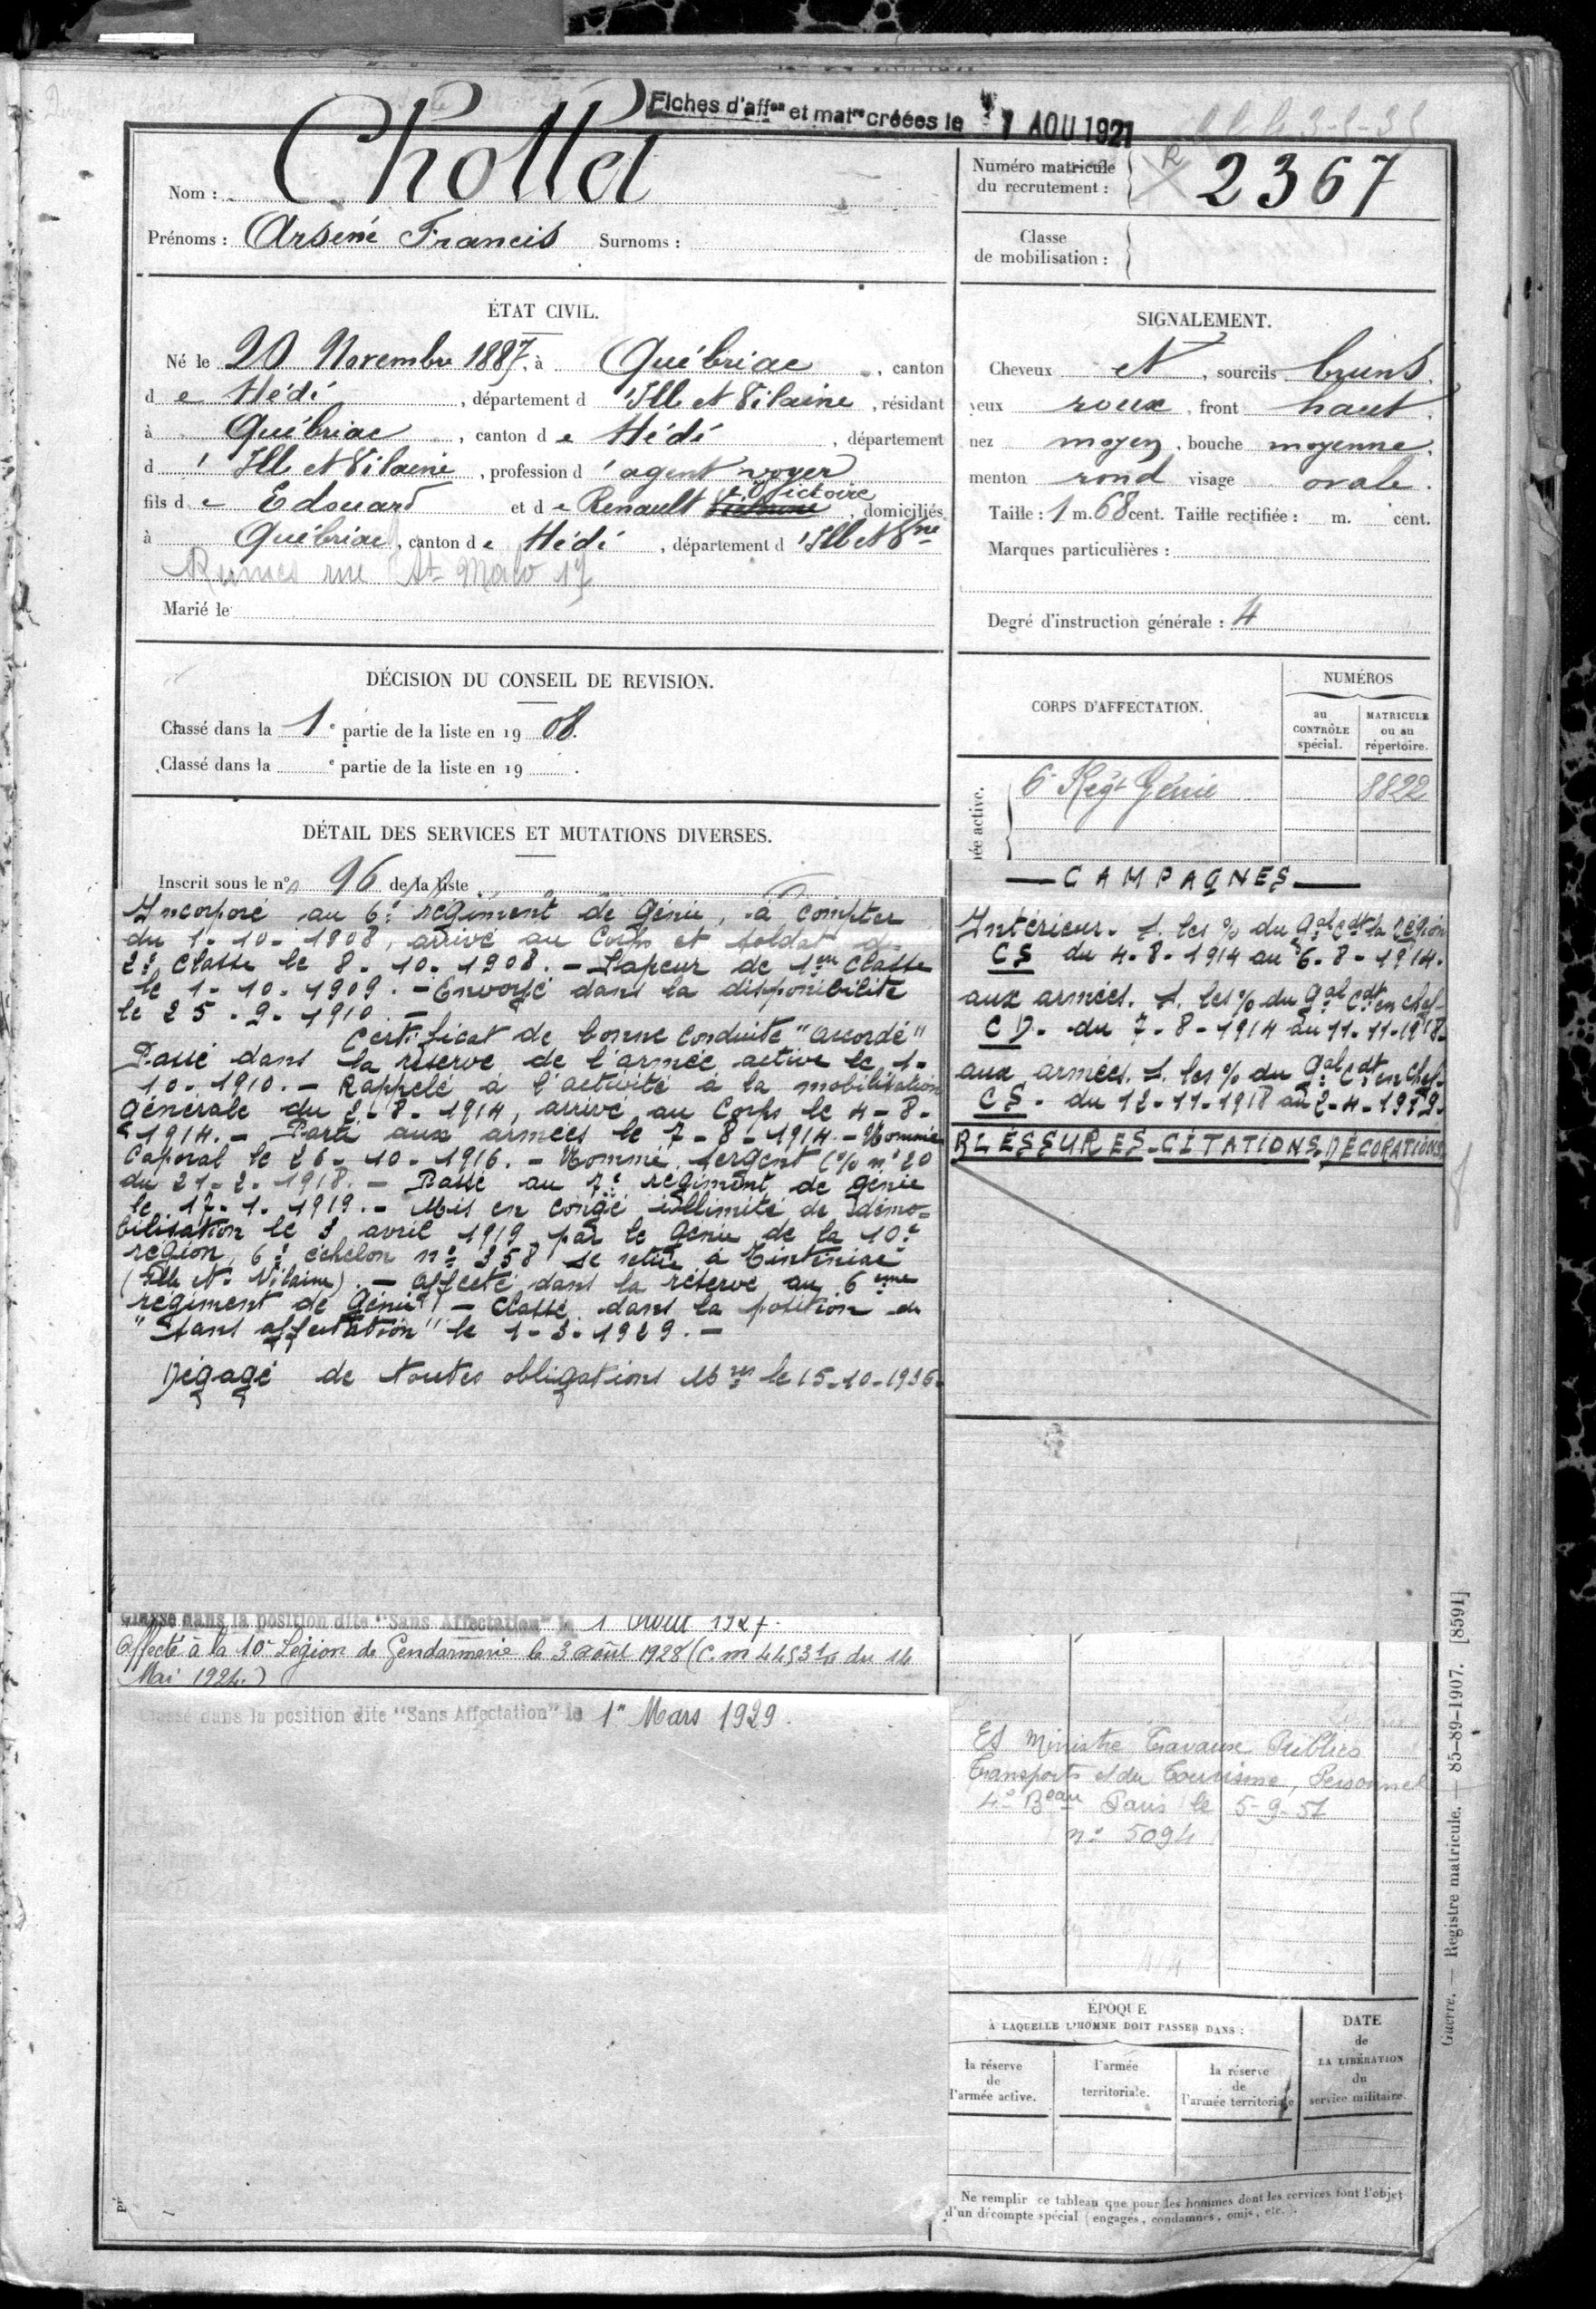 Fiches d'affon et matre créées le 1 AOU 1921
Nom : Chottel
Prénoms : Arsène Francis Surnoms :
Numéro matricule
du recrutement : R 2367
Classe
de mobilisation :
ÉTAT CIVIL.
Né le 20 Novembre 1887, à Québriac, canton
de Hédé, département d'Ille et Vilaine, résidant
à Québriac, canton de Hédé, département
d'Ille et Vilaine, profession d'agent voyer
fils de Edouard et de Renault Victoire, domiciliés
à Québriac, canton de Hédé, département d'Ille et Vne
Rennes rue St Malo
Marié le
SIGNALEMENT.
Cheveux et, sourcils bruns,
yeux roux, front haut,
nez moyen, bouche moyenne,
menton rond visage ovale.
Taille : 1 m. 68 cent. Taille rectifiée : m. cent.
Marques particulières :
Degré d'instruction générale : 4
DÉCISION DU CONSEIL DE REVISION.
Classé dans la 1e partie de la liste en 1908.
Classé dans la e partie de la liste en 19 .
CORPS D'AFFECTATION.
NUMÉROS
au
CONTRÔLE
spécial.
MATRICULE
ou au
répertoire.
ée active.
6e Régt Génie 8822
DÉTAIL DES SERVICES ET MUTATIONS DIVERSES.
Inscrit sous le no 96 de la liste
Incorporé au 6e régiment de Génie, à compter
du 1-10-1908, arrivé au Corps et soldat de
2e classe le 8-10-1908. - Sapeur de 1ère classe
le 1-10-1909. - Envoyé dans la disponibilité
le 25-9-1910. -
Certificat de bonne conduite "accordé"
Passé dans la réserve de l'armée active le 1-
10-1910. - Rappelé à l'activité à la mobilisation
Générale du 2-8-1914, arrivé au Corps le 4-8-
1914. - Parti aux armées le 7-8-1914 - Nommé
Caporal le 26-10-1916. - Nommé sergent (% no 20
du 21-2-1918. - Passé au 7e régiment de génie
le 17-1-1919. - Mis en congé illimité de démo-
bilisation le 3 avril 1919 par le Génie de la 10e
région, 6e échelon no 358 se retire à Tinténiac
(Ille et Vilaine). - affecté dans la réserve au 6ème
régiment de Génie - Classé dans la position de
"Sans affectation" le 1-3-1929. -
Dégagé de toutes obligations Mres le 15-10-1936.
CAMPAGNES
Intérieur. S. les % du Gal Cdt la région
CS du 4-8-1914 au 6-8-1914.
aux armées. S. les % du Gal Cdt en chef-
CD. du 7-8-1914 au 11-11-1918.
aux armées. S. les % du Gal Cdt en chef-
CS. du 12-11-1918 au 2-4-1919.
BLESSURES-CITATIONS-DÉCORATIONS
Classé dans la position dite "Sans Affectation" le 1 Août 1927.
Affecté à la 10e Légion de Gendarmerie le 3 août 1928 (C. m du 14
Mai 1924.)
Classé dans la position dite "Sans Affectation" le 1er Mars 1929.
ES Ministre Travaux Publics
Transports et du Tourisme, Personnel
4e Beau Paris le 5-9-51
no 5094
ÉPOQUE
À LAQUELLE L'HOMME DOIT PASSER DANS :
la réserve
de
l'armée active.
l'armée
territoriale.
la réserve
de
l'armée territoriale
DATE
de
LA LIBÉRATION
du
service militaire.
Ne remplir ce tableau que pour les hommes dont les services font l'objet
d'un décompte spécial (engagés, condamnés, omis, etc.).
Guerre. — Registre matricule. — 85-89-1907. [8591]